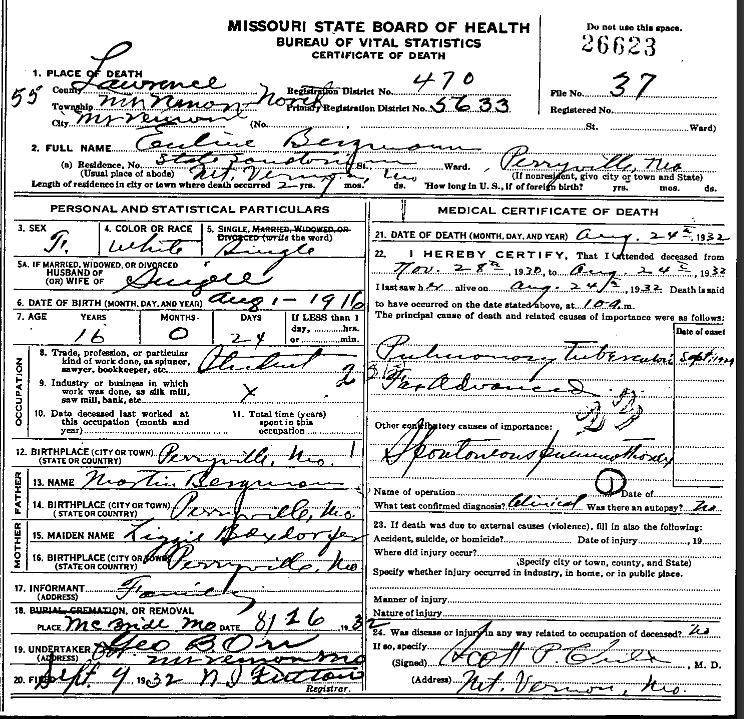 MISSOURI STATE BOARD OF HEALTH
BUREAU OF VITAL STATISTICS
CERTIFICATE OF DEATH
Do not use this space.
26623
1. PLACE OF DEATH
55 County Lawrence Registration District No. 470 File No. 37
Township Mt Vernon North Primary Registration District No. 5633 Registered No.
City Mt Vernon (No. St. Ward)
2. FULL NAME Euline Bergmann
(a) Residence, No. State St. Ward. Perryville, Mo
(Usual place of abode) Mt. Vernon, Mo (If nonresident, give city or town and State)
Length of residence in city or town where death occurred 2 yrs. mos. ds. How long in U. S., if of foreign birth? yrs. mos. ds.
PERSONAL AND STATISTICAL PARTICULARS
3. SEX F. 4. COLOR OR RACE White 5. SINGLE, MARRIED, WIDOWED, OR DIVORCED (write the word) Single
5A. IF MARRIED, WIDOWED, OR DIVORCED
HUSBAND OF
(OR) WIFE OF Single
6. DATE OF BIRTH (MONTH, DAY, AND YEAR) Aug 1 - 1916
7. AGE YEARS MONTHS DAYS If LESS than 1
16 0 24 day, hrs.
or min.
OCCUPATION
8. Trade, profession, or particular
kind of work done, as spinner,
sawyer, bookkeeper, etc. Student 2
9. Industry or business in which
work was done, as silk mill,
saw mill, bank, etc. X
10. Date deceased last worked at
this occupation (month and
year)
11. Total time (years)
spent in this
occupation
12. BIRTHPLACE (CITY OR TOWN) Perryville, Mo. 1
(STATE OR COUNTRY)
FATHER
13. NAME Martin Bergman
14. BIRTHPLACE (CITY OR TOWN) Perryville, Mo
(STATE OR COUNTRY)
MOTHER
15. MAIDEN NAME Lizzie Boxdorfer
16. BIRTHPLACE (CITY OR TOWN) Perryville, Mo.
(STATE OR COUNTRY)
17. INFORMANT Family
(ADDRESS)
18. BURIAL, CREMATION, OR REMOVAL
PLACE McBride Mo DATE 8/26 1932
19. UNDERTAKER Geo B Orr
(ADDRESS) Mt Vernon Mo
20. FILED Sept. 9 1932
Registrar.
MEDICAL CERTIFICATE OF DEATH
21. DATE OF DEATH (MONTH, DAY, AND YEAR) Aug. 24th, 1932
22. I HEREBY CERTIFY, That I attended deceased from
Nov. 28th, 1930, to Aug. 24th, 1932
I last saw h er alive on Aug. 24th, 1932 Death is said
to have occurred on the date stated above, at 10 a m.
The principal cause of death and related causes of importance were as follows:
Date of onset
Pulmonary Tuberculosis Sept. 1929
Far Advanced
Other contributory causes of importance:
Spontaneous pneumothorax
Name of operation Date of
What test confirmed diagnosis? Clinical Was there an autopsy? No
23. If death was due to external causes (violence), fill in also the following:
Accident, suicide, or homicide? Date of injury , 19
Where did injury occur?
(Specify city or town, county, and State)
Specify whether injury occurred in industry, in home, or in public place.
Manner of injury
Nature of injury
24. Was disease or injury in any way related to occupation of deceased? No
If so, specify
(Signed) Scott P. Child, M. D.
(Address) Mt. Vernon, Mo.